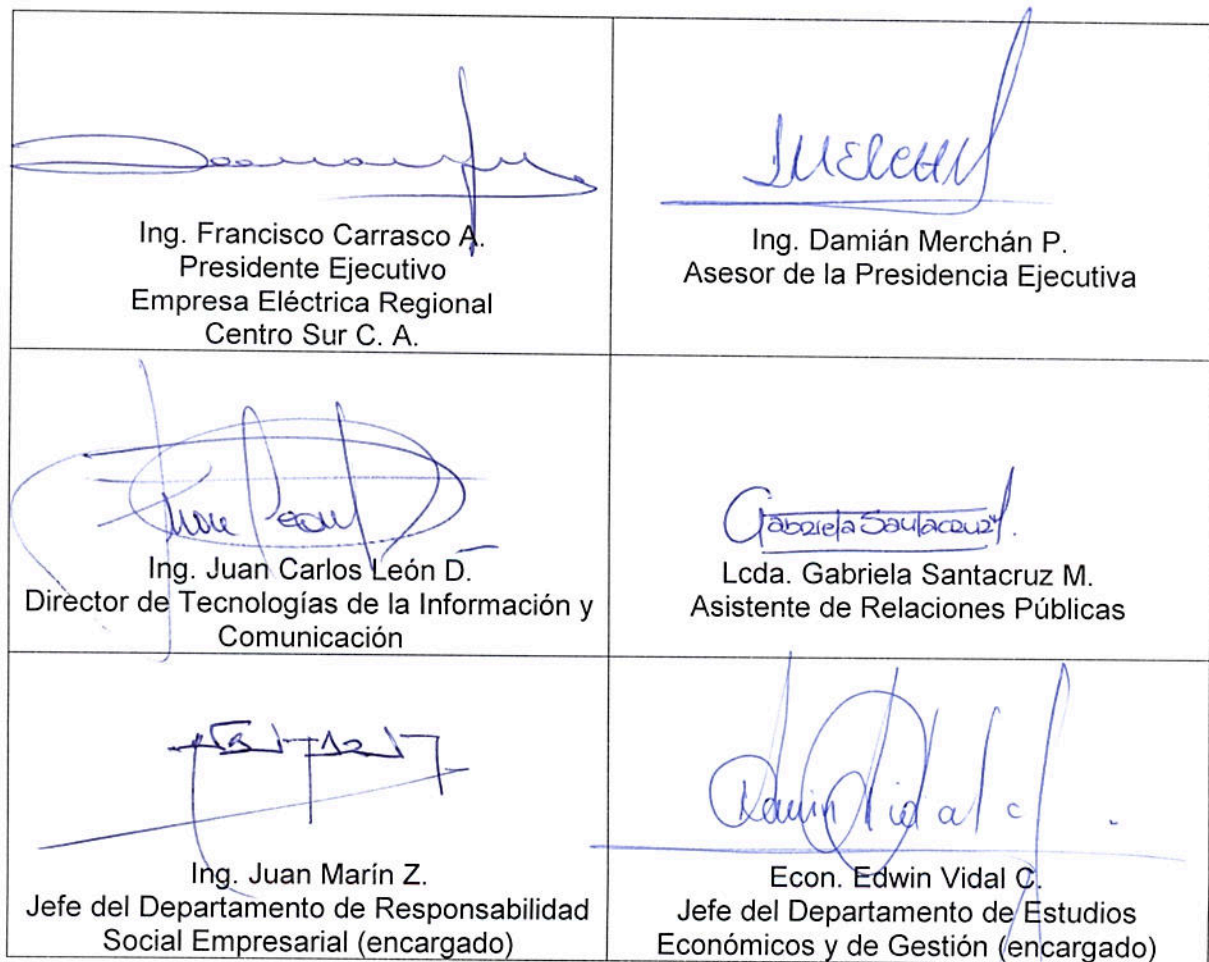 Ing. Francisco Carrasco A.
Presidente Ejecutivo
Empresa Eléctrica Regional
Centro Sur C. A.
Ing. Damián Merchán P.
Asesor de la Presidencia Ejecutiva
Juan León
Ing. Juan Carlos León D.
Director de Tecnologías de la Información y
Comunicación
Gabriela Santacruz M.
Lcda. Gabriela Santacruz M.
Asistente de Relaciones Públicas
Ing. Juan Marín Z.
Jefe del Departamento de Responsabilidad
Social Empresarial (encargado)
Edwin Vidal C.
Econ. Edwin Vidal C.
Jefe del Departamento de Estudios
Económicos y de Gestión (encargado)